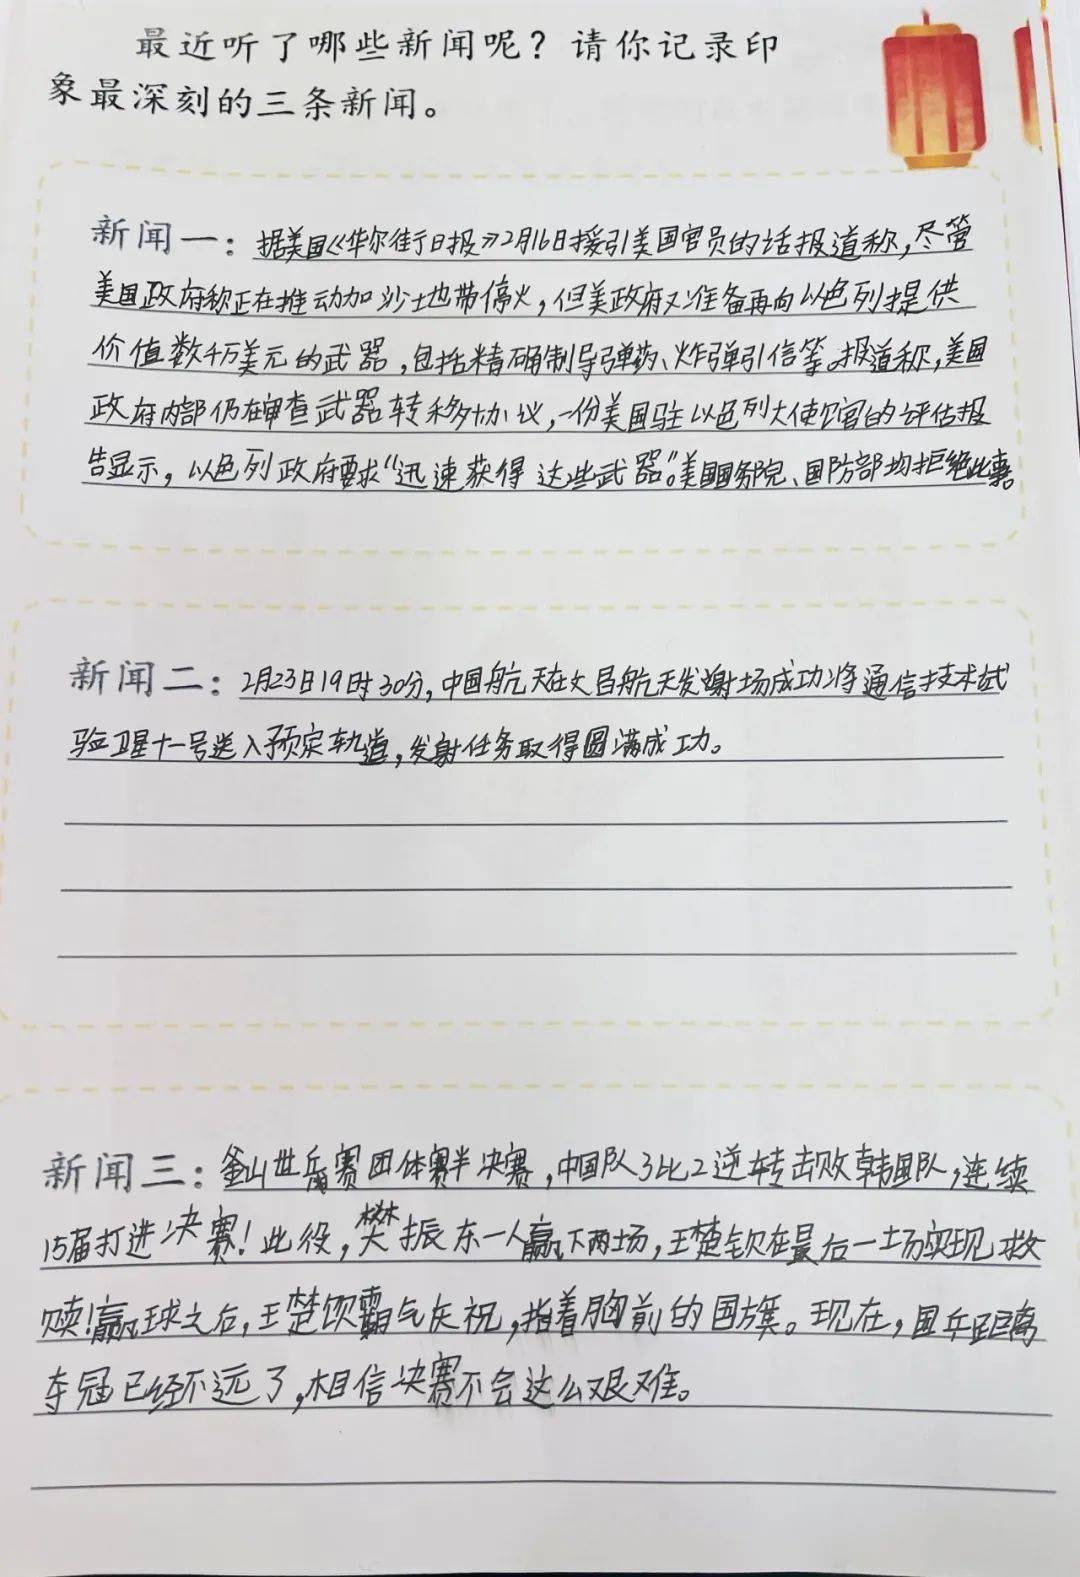 最近听了哪些新闻呢？请你记录印
象最深刻的三条新闻。
新闻一：据美国《华尔街日报》2月16日援引美国官员的话报道称，尽管
美国政府称正在推动加沙土地带停火，但美政府又准备再向以色列提供
价值数千万美元的武器，包括精确制导弹药、炸弹引信等。报道称，美国
政府内部仍在审查武器转移协议，一份美国驻以色列大使馆的评估报
告显示，以色列政府要求“迅速获得这些武器”。美国国务院、国防部均拒绝此事。
新闻二：2月23日19时30分，中国航天在文昌航天发射场成功将通信技术试
验卫星十一号送入预定轨道，发射任务取得圆满成功。
新闻三：釜山世乒赛团体赛半决赛，中国队3比2逆转击败韩国队，连续
15届打进决赛！此役，樊振东一人赢下两场，王楚钦在最后一场实现救
赎！赢球之后，王楚钦霸气庆祝，指着胸前的国旗。现在，国乒距离
夺冠已经不远了，相信决赛不会这么艰难。